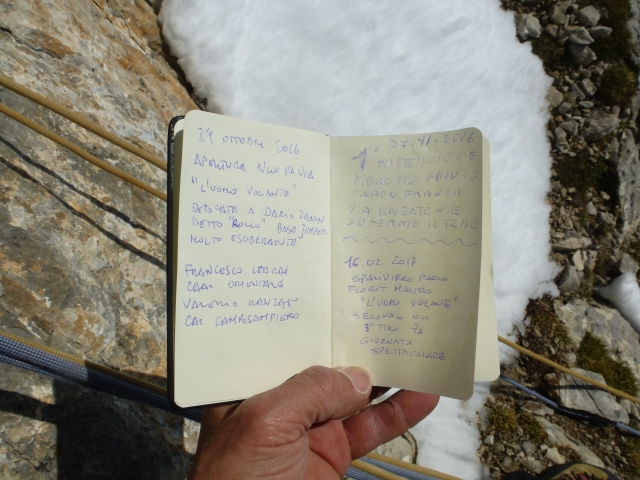 29 OTTOBRE 2016
APERTURA NUOVA VIA
"L'UOMO VOLANTE"
DEDICATA A DARIO ZANON
DETTO "ROLLO" BASE JUMPER
MOLTO ESUBERANTE
FRANCESCO
CAAI ORIENTALE
VALERIO
CAI CAMPOSAMPIERO
1° RIPETIZIONE
27-11-2016
MORETTO MAURO
CARON FRANCA
VIA
SUPERATO IL TETTO
16.02.2017
SPANIVIERO PAOLO
FLORIT MAURO
"L'UOMO VOLANTE"
SECONDO NOI
3° TIRO 7a
GIORNATA
SPETTACOLARE